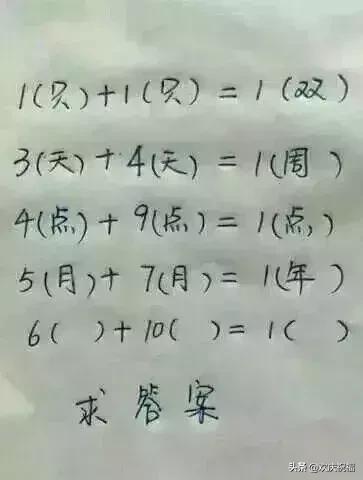 1(只)+1(只)=1(双)
3(天)+4(天)=1(周)
4(点)+9(点)=1(点)
5(月)+7(月)=1(年)
6( )+10( )=1( )
求答案
头条@欢庆祝福